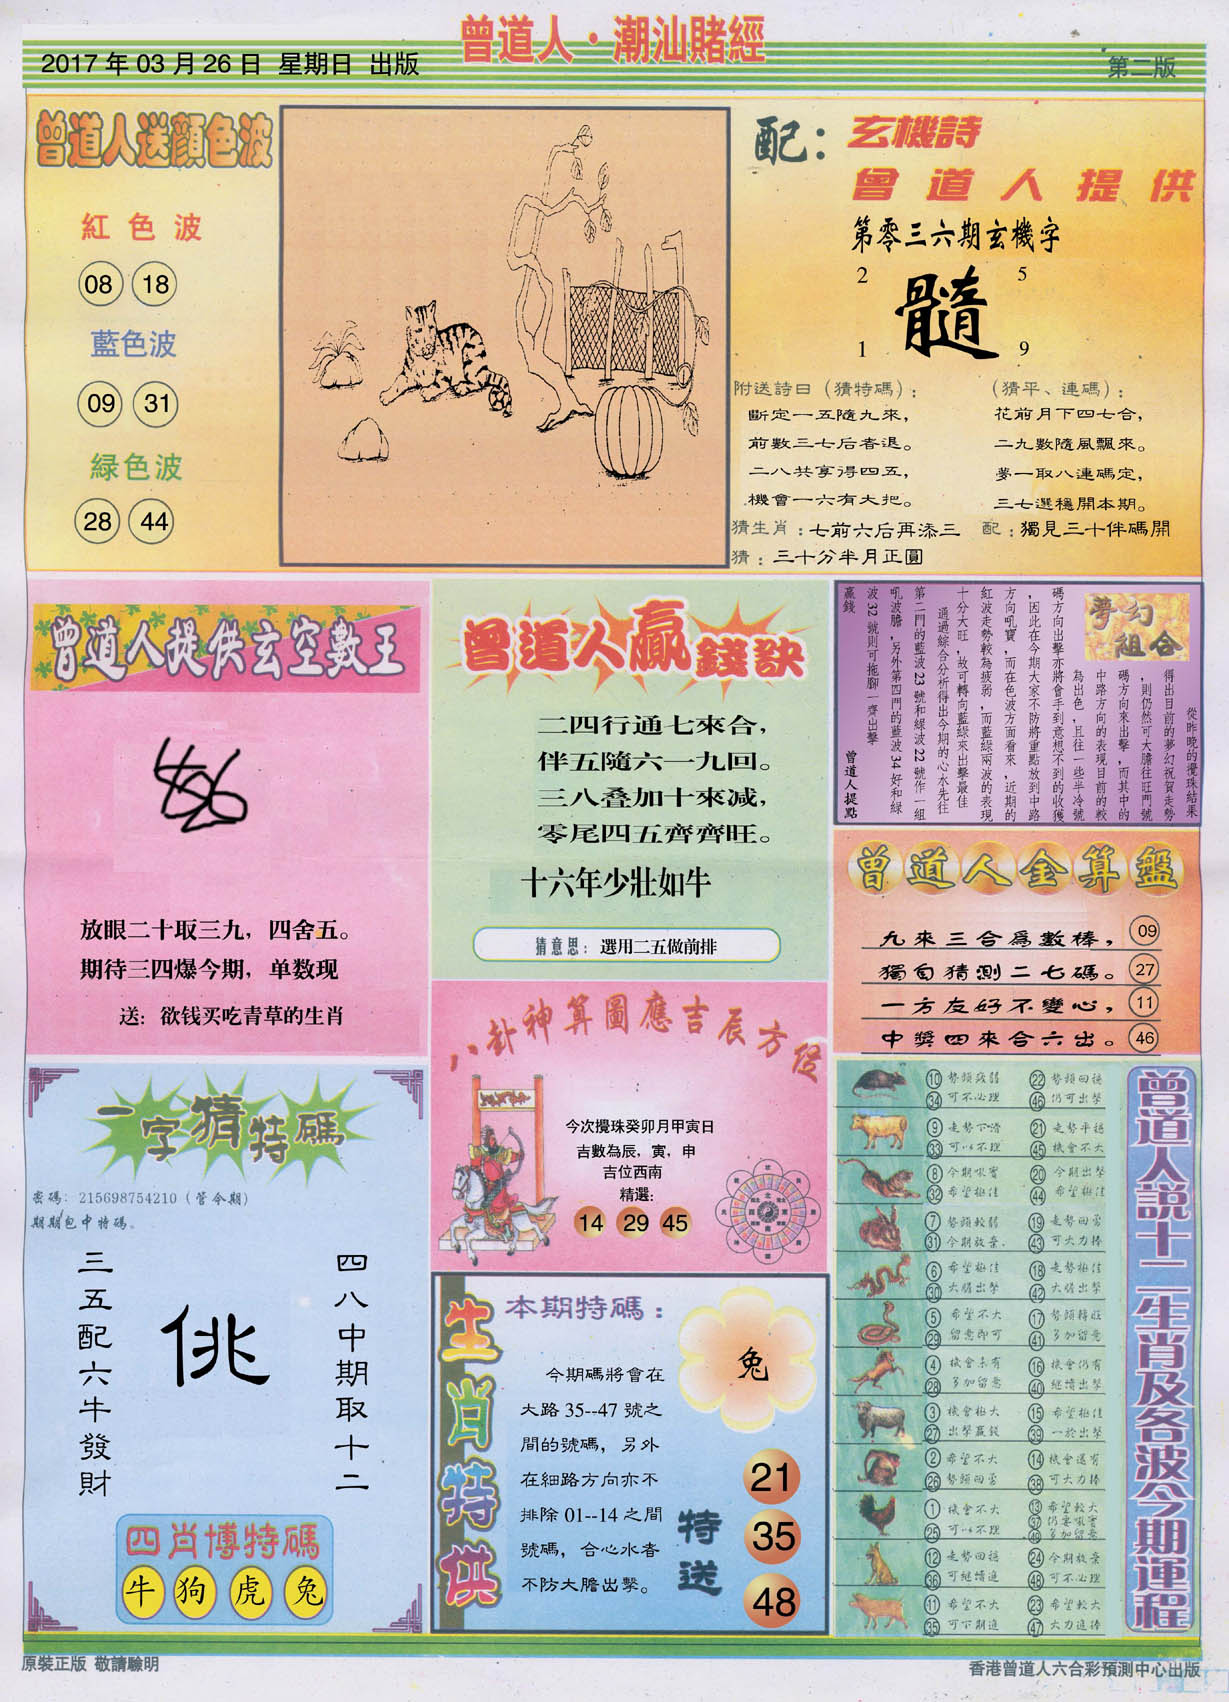 曾道人·潮汕賭經
2017年03月26日 星期日 出版
第二版
曾道人送顏色波
紅色波
08 18
藍色波
09 31
緑色波
28 44
配：玄機詩
曾道人提供
第零三六期玄機字
2 5
髓
1 9
附送詩曰（猜特碼）：
斷定一五隨九來，
前數三七后者退。
二八共享得四五，
機會一六有大把。
（猜平、連碼）：
花前月下四七合，
二九數隨風飄來。
夢一取八連碼定，
三七選穩開本期。
猜生肖：七前六后再添三
配：獨見三十伴碼開
猜：三十分半月正圓
曾道人提供玄空數王
放眼二十取三九，四舍五。
期待三四爆今期，单数现
送：欲钱买吃青草的生肖
曾道人贏錢訣
二四行通七來合，
伴五隨六一九回。
三八叠加十來減，
零尾四五齊齊旺。
十六年少壯如牛
猜意思：選用二五做前排
夢幻組合
從昨晚的攪珠結果
得出目前的夢幻祝賀走勢
，則仍然可大膽往旺門號
碼方向來出擊，而其中的
中路方向的表現目前的較
為出色，且往一些半冷號
碼方向出擊亦將會手到意想不到的收獲
，因此在今期大家不防將重點放到中路
方向吼寶，而在色波方面看來，近期的
紅波走勢較為疲弱，而藍綠兩波的表現
十分大旺，故可轉向藍綠來出擊最佳
通過綜合分析得出今期的心水先往
第二門的藍波23號和綠波22號作一組
吼波膽，另外第四門的藍波34好和綠
波32號則可拖腳一齊出擊
贏錢
曾道人提點
曾道人金算盤
九來三合爲數棒， 09
獨自猜測二七碼。 27
一方友好不變心， 11
中獎四來合六出。 46
八卦神算圖應吉辰方位
今次攪珠癸卯月甲寅日
吉數為辰，寅，申
吉位西南
精選:
14 29 45
一字猜特碼
密碼：215698754210（管令期）
期期包中特碼。
四八中期取十二
佻
三五配六牛發財
四肖博特碼
牛 狗 虎 兔
生肖特供
本期特碼：
兔
今期碼將會在
大路35--47號之
間的號碼，另外
在細路方向亦不
排除01--14之間
號碼，合心水者
不防大膽出擊。
特送
21
35
48
曾道人説十二生肖及各波今期運程
10 勢頭疲弱 22 勢頭回穩
34 可不必理 46 仍可出擊
9 走勢下滑 21 走勢平穩
33 可以不理 45 機會不大
8 今期吼寶 20 今期出擊
32 希望極佳 44 希望極佳
7 勢頭較弱 19 走勢回勇
31 今期放棄. 43 可大力捧
6 希望極佳 18 走勢極佳
30 大膽出擊 42 大膽出擊
5 希望不大 17 勢頭轉旺
29 留意即可 41 多加留意
4 機會未有 16 機會仍有
28 多加留意 40 繼續出擊
3 機會極大 15 希望極佳
27 出擊贏錢 39 一於出擊
2 希望不大 14 機會還有
26 勢頭回勇 38 可大力捧
1 機會不大 13 希望較大
37 仍要吼實
25 可以不理 49 多加留意
12 走勢回穩 24 今期放棄
36 可繼續追 48 可不必理
11 希望不大 23 希望較大
35 可下期追 47 大力追捧
原裝正版 敬請驗明
香港曾道人六合彩預測中心出版